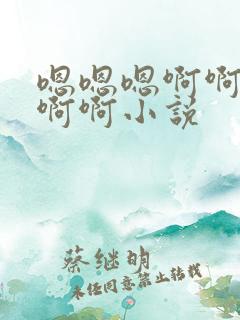 嗯嗯嗯啊啊
啊啊小说
蔡继明
未经同意禁止转载